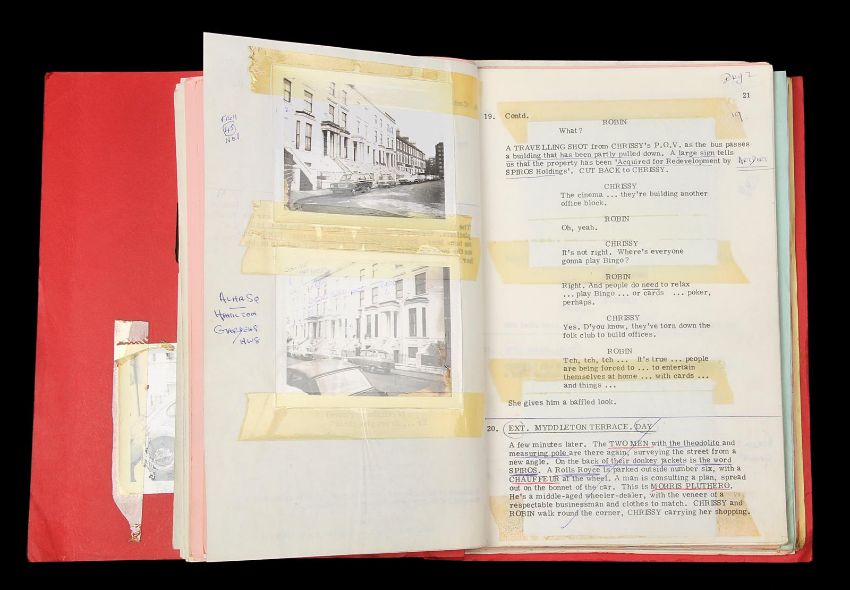 Day 2
21
19. Contd.
19.
ROBIN
What?
A TRAVELLING SHOT from CHRISSY's P.O.V. as the bus passes
a building that has been partly pulled down. A large sign tells
us that the property has been 'Acquired for Redevelopment by
SPIROS Holdings'. CUT BACK to CHRISSY.
CHRISSY
The cinema ... they're building another
office block.
ROBIN
Oh, yeah.
CHRISSY
It's not right. Where's everyone
gonna play Bingo?
ROBIN
Right. And people do need to relax
... play Bingo ... or cards ... poker,
perhaps.
CHRISSY
Yes. D'you know, they've torn down the
folk club to build offices.
ROBIN
Tch, tch, tch ... It's true ... people
are being forced to ... to entertain
themselves at home ... with cards ...
and things ...
She gives him a baffled look.
20. EXT. MYDDLETON TERRACE. DAY
A few minutes later. The TWO MEN with the theodolite and
measuring pole are there again, surveying the street from a
new angle. On the back of their donkey jackets is the word
SPIROS. A Rolls Royce is parked outside number six, with a
CHAUFFEUR at the wheel. A man is consulting a plan, spread
out on the bonnet of the car. This is MORRIS PLUTHERO.
He's a middle-aged wheeler-dealer, with the veneer of a
respectable businessman and clothes to match. CHRISSY and
ROBIN walk round the corner, CHRISSY carrying her shopping.
HAMILTON
GARDENS
NW8